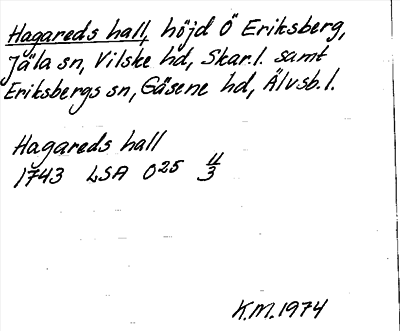 Hagareds hall, höjd Ö Eriksberg,
Jäla sn, Vilske hd, Skar. l. samt
Eriksbergs sn, Gäsene hd, Älvsb. l.
Hagareds hall
1743 LSA O25 4/3
K.M. 1974